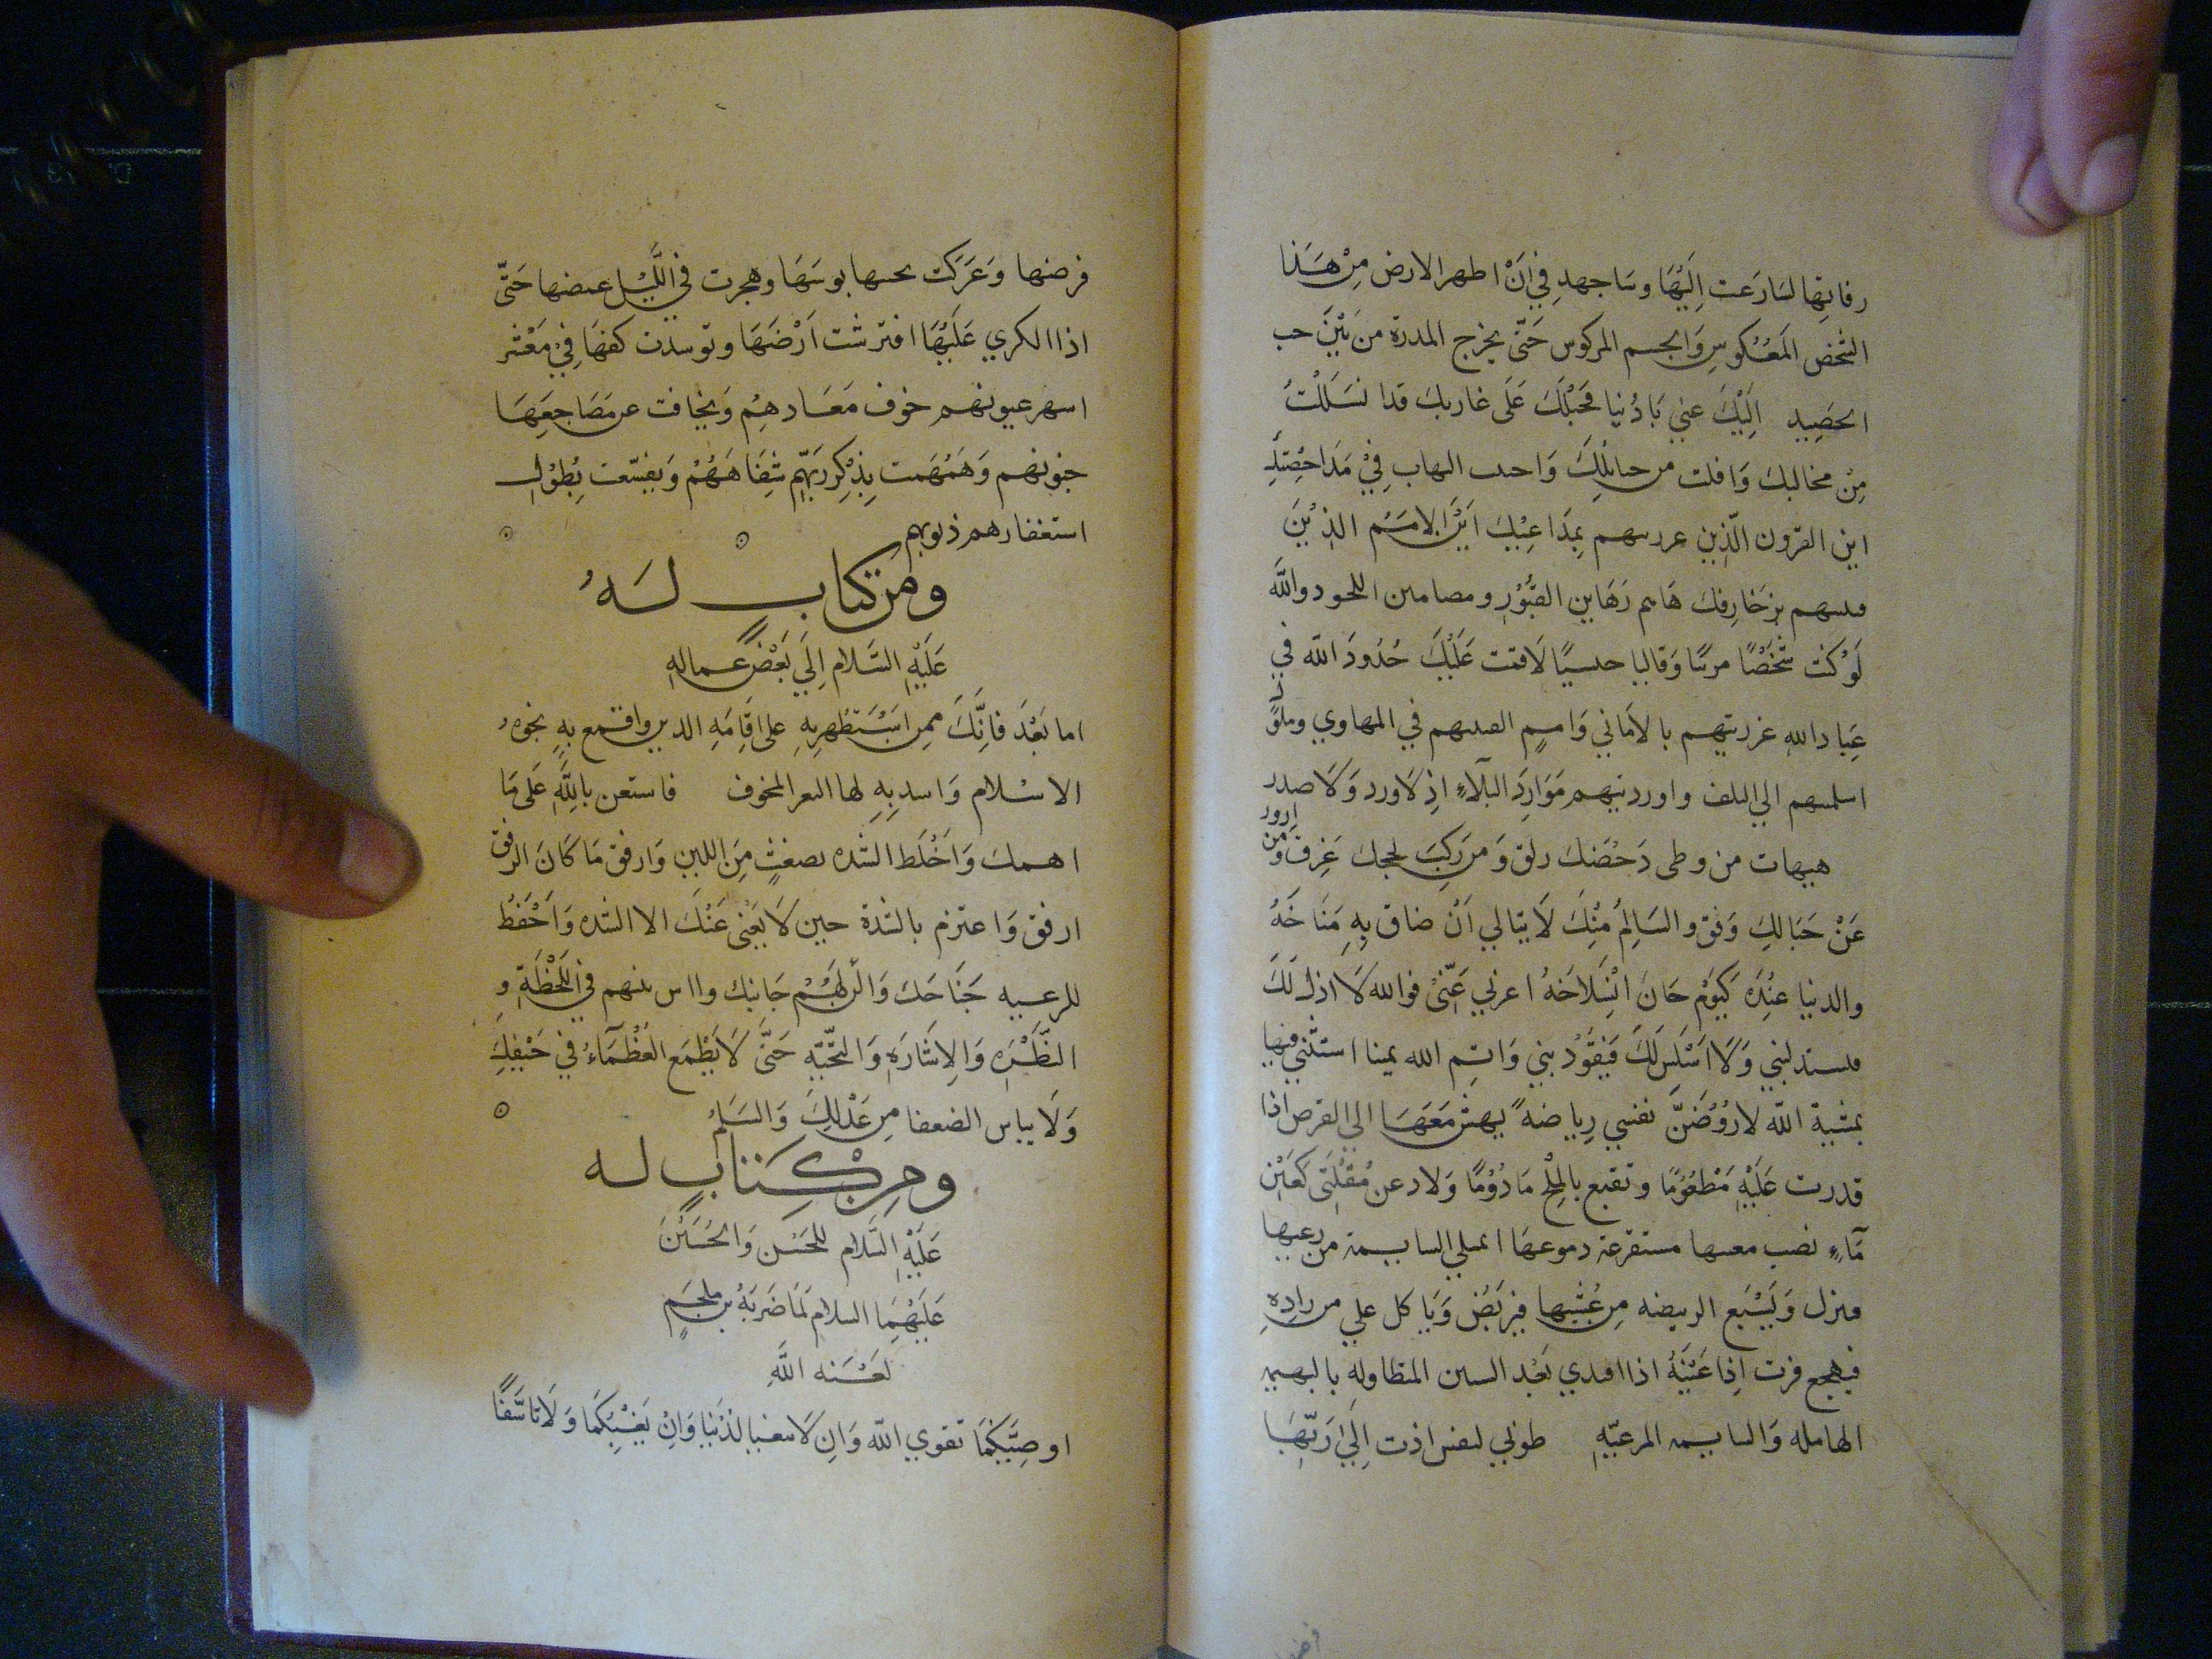 رقابها لسارعت اليها وساجهد في ان اطهر الارض من هذا
الشخص المعكوس والجسم المركوس حتى يخرج المدرة من بين حب
الحصيد اليك عني يا دنيا فحبلك على غاربك قد انسللت
من مخالبك وافلت من حبائلك واجتنبت الذهاب في مداحضك
اين القرون الذين غررتهم بمداعبك اين الامم الذين
فتنتهم بزخارفك هاهم رهاين القبور ومضامين اللحود والله
لو كنت شخصا مرئيا وقالبا حسيا لاقمت عليك حدود الله في
عباد الله غررتهم بالاماني وامم القيتهم في المهاوي وملوك
اسلمتهم الى التلف واوردتهم موارد البلاء اذ لا ورد ولا صدر
هيهات من وطى دحضك زلق ومن ركب لججك غرق ومن ازور
عن حبالك وفق والسالم منك لا يبالي ان ضاق به مناخه
والدنيا عنده كيوم حان انسلاخه اعزبي عني فوالله لا اذل لك
فتستذليني ولا اسلس لك فتقوديني وايم الله يمينا استثني فيها
بمشية الله لاروضن نفسي رياضة يهش معها الى القرص اذا
قدرت عليه مطعوما وتقنع بالملح مادوما ولادعن مقلتي كعين
ماء نضب معينها مستفرغة دموعها اتمتلي السايمة من رعيها
فتبرك ويشبع الربيضة من عشبها فتربض وياكل علي من زاده
فيهجع قرت اذا عينه اذا اقتدي بعد السنين المتطاوله بالبهيمه
الهامله والسايمه المرعيه طوبى لنفس ادت الى ربها
فرضها وعركت بجنبها بوسها وهجرت في الليل غمضها حتى
اذا الكرى عليها افترشت ارضها وتوسدت كفها في معشر
اسهر عيونهم خوف معادهم وتجافت عن مضاجعها
جنوبهم وهمهمت بذكر ربهم شفاههم وتقشعت بطول
استغفارهم ذنوبهم
ومن كتاب له
عليه السلام الى بعض عماله
اما بعد فانك ممن استظهر به على اقامه الدين واقمع به نخوه
الاسلام واسد به لها الثغر المخوف فاستعن بالله على ما
اهمك واخلط الشده بضغث من اللين وارفق ما كان الرفق
ارفق واعتزم بالشدة حين لا يغنى عنك الا الشده واحفظ
للرعيه جناحك والن لهم جانبك وااس بينهم في اللحظة و
النظره والاشاره والتحيه حتى لا يطمع العظماء في حيفك
ولا يياس الضعفا من عدلك والسلم
ومن كتاب له
عليه السلام للحسن والحسين
عليهما السلام لما ضربه بن ملجم
لعنه الله
اوصيكما تقوى الله وان لا تبغيا الدنيا وان بغتكما ولا تاسفا